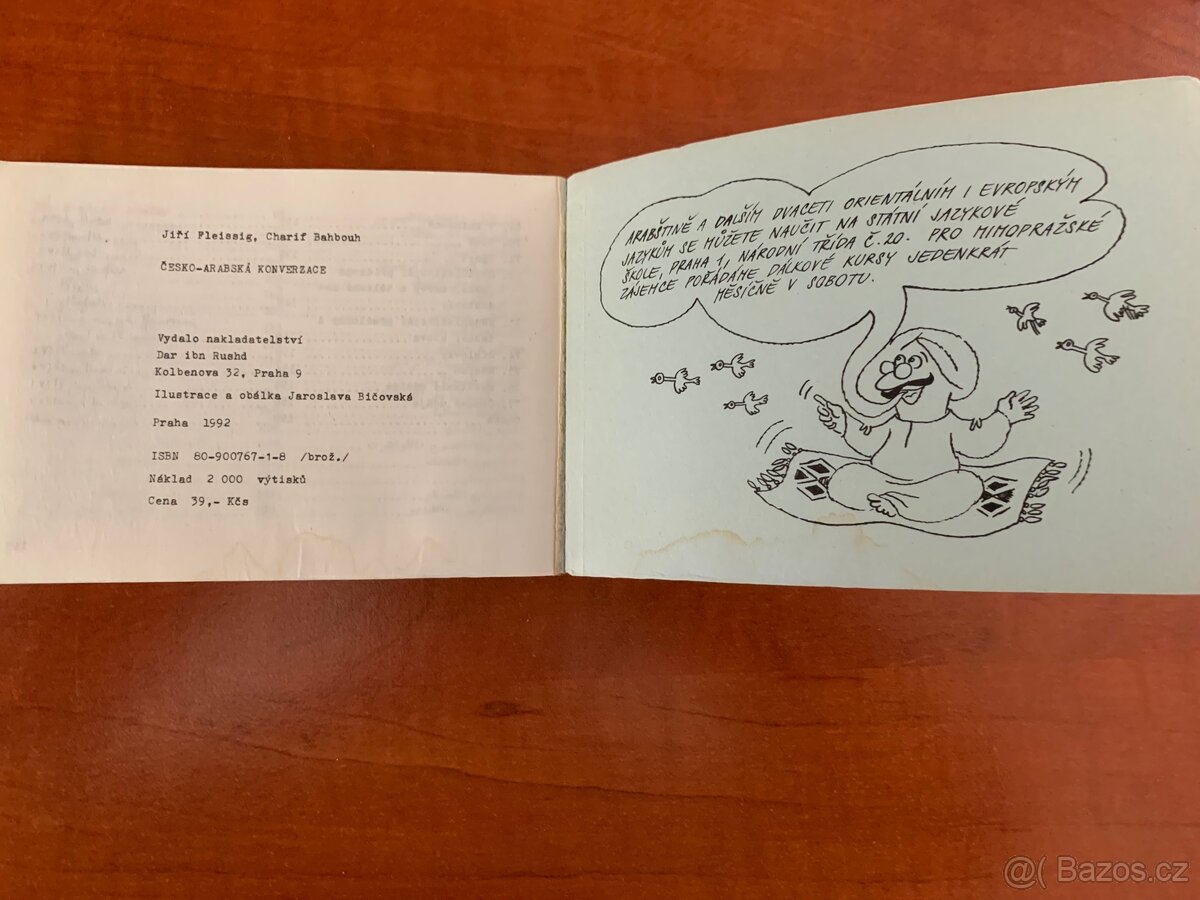 Jiří Fleissig, Charif Bahbouh
ČESKO-ARABSKÁ KONVERZACE
Vydalo nakladatelství
Dar ibn Rushd
Kolbenova 32, Praha 9
Ilustrace a obálka Jaroslava Bičovská
Praha 1992
ISBN 80-900767-1-8 /brož./
Náklad 2 000 výtisků
Cena 39,- Kčs
ARABŠTINĚ A DALŠÍM DVACETI ORIENTÁLNÍM I EVROPSKÝM
JAZYKŮM SE MŮŽETE NAUČIT NA STÁTNÍ JAZYKOVÉ
ŠKOLE, PRAHA 1, NÁRODNÍ TŘÍDA Č.20. PRO MIMOPRAŽSKÉ
ZÁJEMCE POŘÁDÁME DÁLKOVÉ KURSY JEDENKRÁT
MĚSÍČNĚ V SOBOTU.
@( Bazos.cz